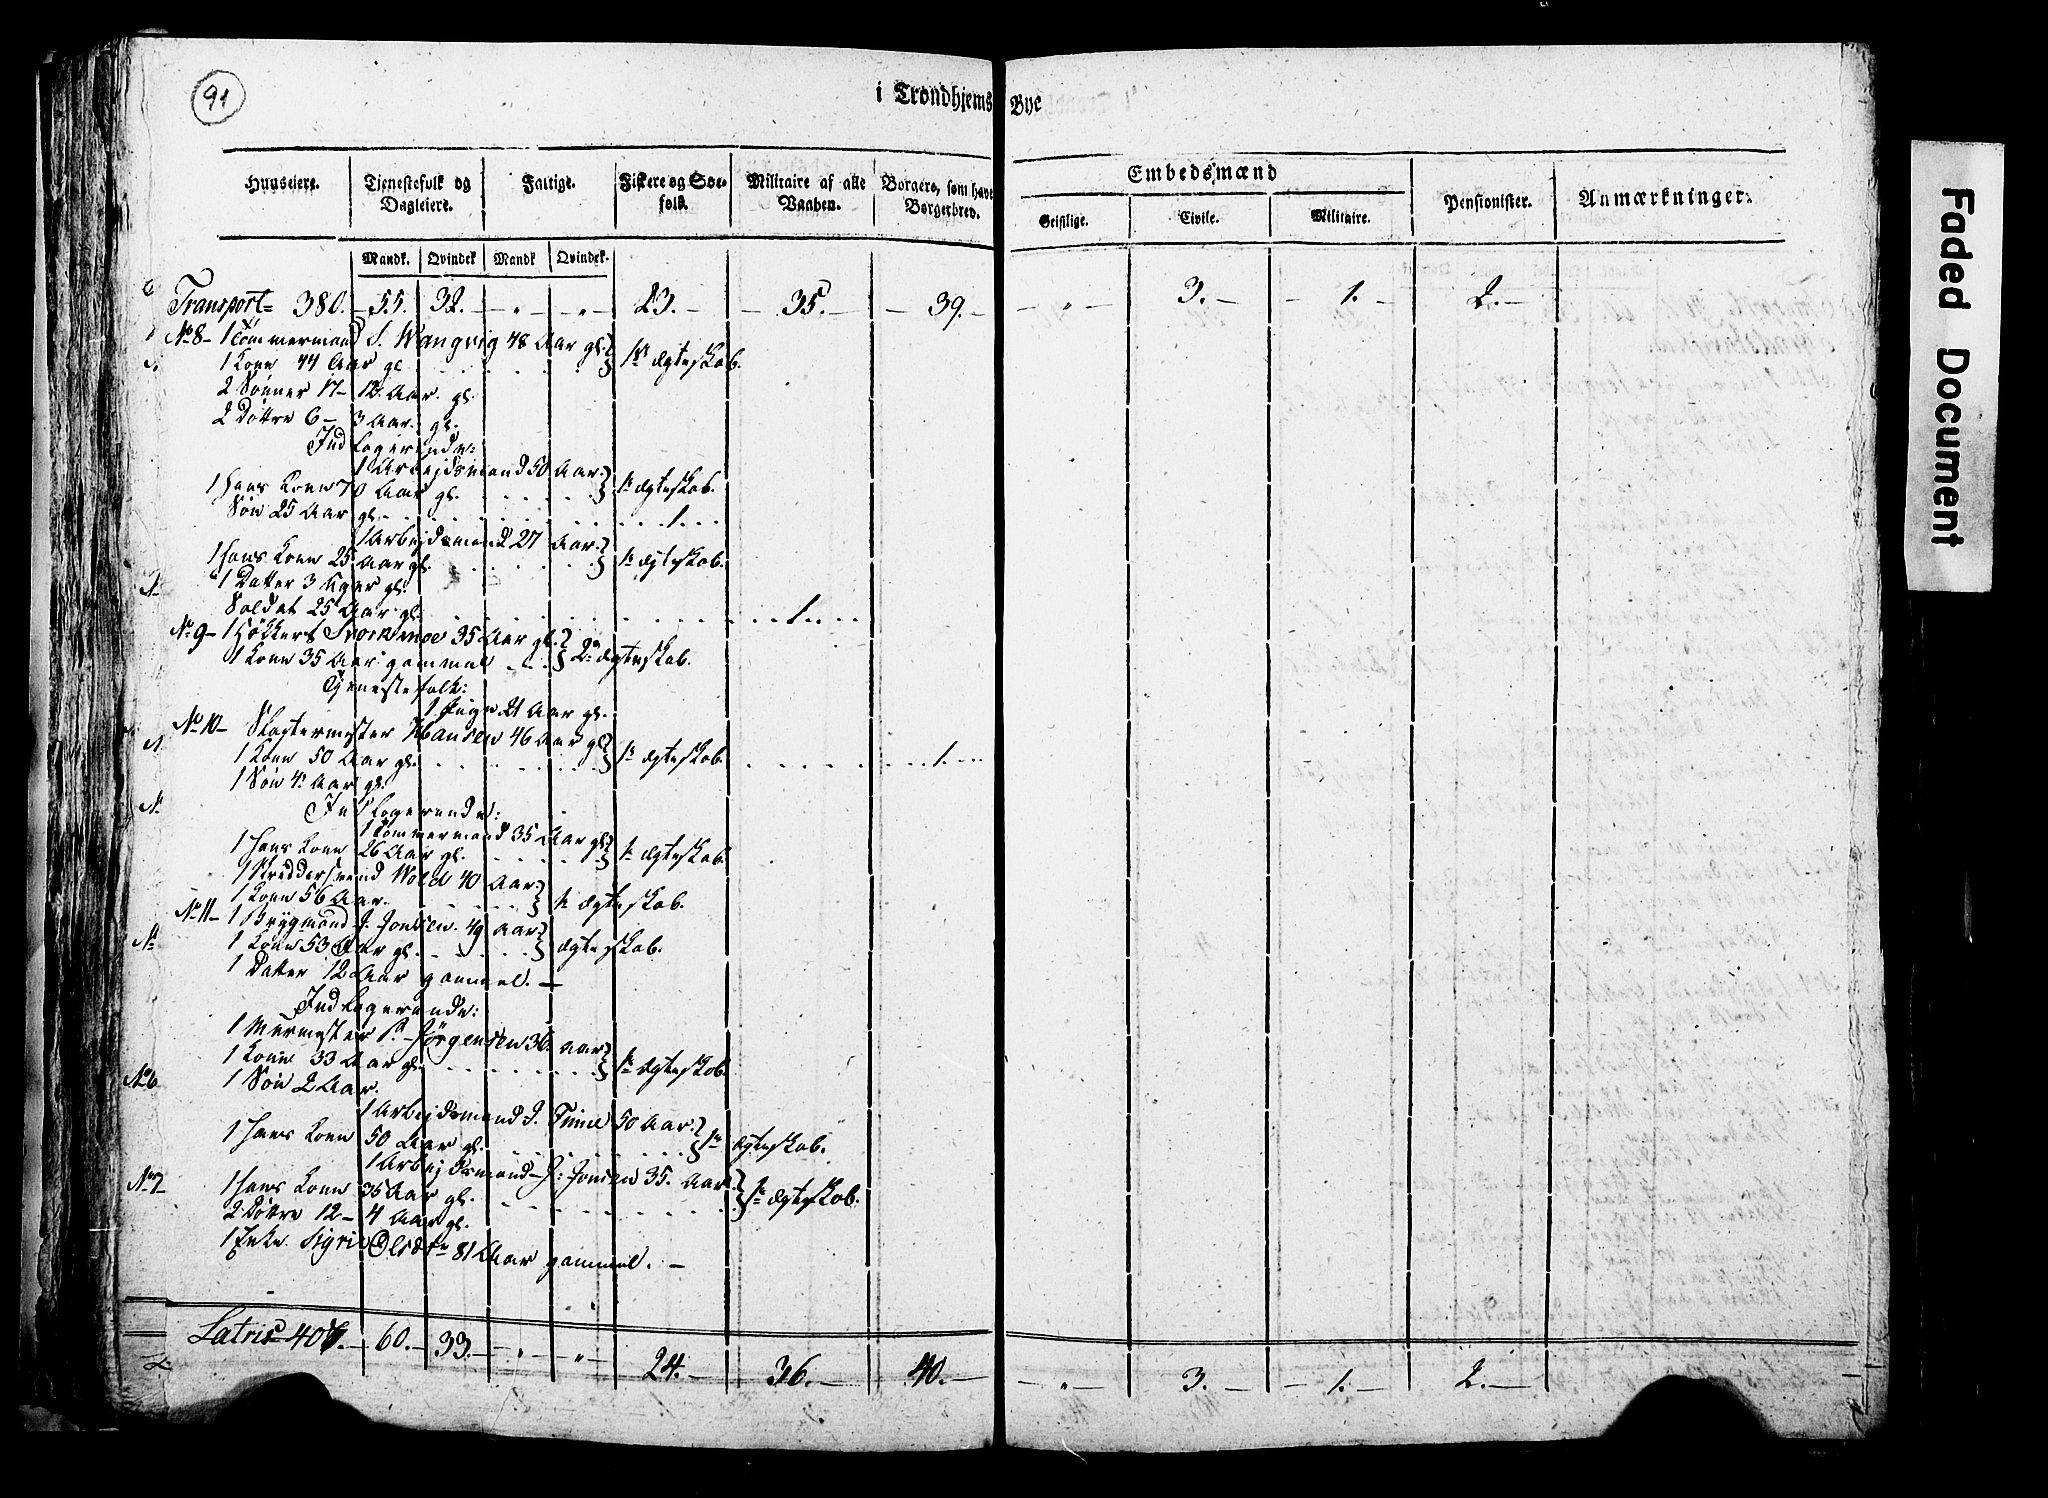 91
i Trondhjems Bye
Huuseiere.
Tjenestefolk og Dagleiere.
Fattige.
Fiskere og Søefolk.
Militaire af alle Vaaben.
Borgere, som have Borgerbrev.
Embedsmænd
Geistlige.
Civile.
Militaire.
Pensionister.
Anmærkninger.
Mandk. Qvindek Mandk Qvindek.
Transport 380. 55. 32. " " 23. 35. 39. " 3. 1. 2.
No 8 1 Tømmermand S. Wangvig 48 Aar gl.
1 Kone 44 Aar gl. 1te Ægteskab.
2 Sønner 17 - 12 Aar gl.
2 Døttre 6 - 3 Aar gl.
Indlogerende:
1 Arbejdsmand 50 Aar.
1 hans Kone 70 Aar gl. 1te Ægteskab.
Søn 25 Aar gl. 1.
1 Arbejdsmand 27 Aar.
1 hans Kone 25 Aar gl. 1te Ægteskab.
1 Datter 3 Aar gl.
Soldat 25 Aar gl. 1.
No 9 1 Høkker Storkmoe 35 Aar gl.
1 Kone 35 Aar gammel 2te Ægteskab.
Tjenestefolk:
1 Pige 21 Aar gl.
No 10 Slagtermester Hansen 46 Aar gl.
1 Kone 50 Aar gl. 1te Ægteskab. 1.
1 Søn 4 Aar gl.
Indlogerende:
1 Tømmermand 35 Aar gl.
1 hans Kone 26 Aar gl. 1te Ægteskab.
1 Skreddersvend Wold 40 Aar.
1 Kone 56 Aar. 1te Ægteskab.
No 11 1 Brygmand J. Jonsen 49 Aar
1 Kone 53 Aar gl. Ægteskab.
1 Datter 12 Aar gammel.
Indlogerende:
1 Murmester P. Jörgensen 36 Aar
1 Kone 33 Aar gl. 1te Ægteskab.
1 Søn 2 Aar.
1 Arbejdsmand J. 50 Aar.
1 hans Kone 50 Aar gl. 1te Ægteskab.
1 Arbejdsmand J: Jonsen 35. Aar.
1 hans Kone 36 Aar gl. 1te Ægteskab.
2 Døttre 12 - 4 Aar gl.
1 Enke Sigri Olsdtr 81 Aar gammel.
Latris 407. 60. 33. " " 24. 36. 40. " 3. 1. 2.
No 6
No 7
Faded Document